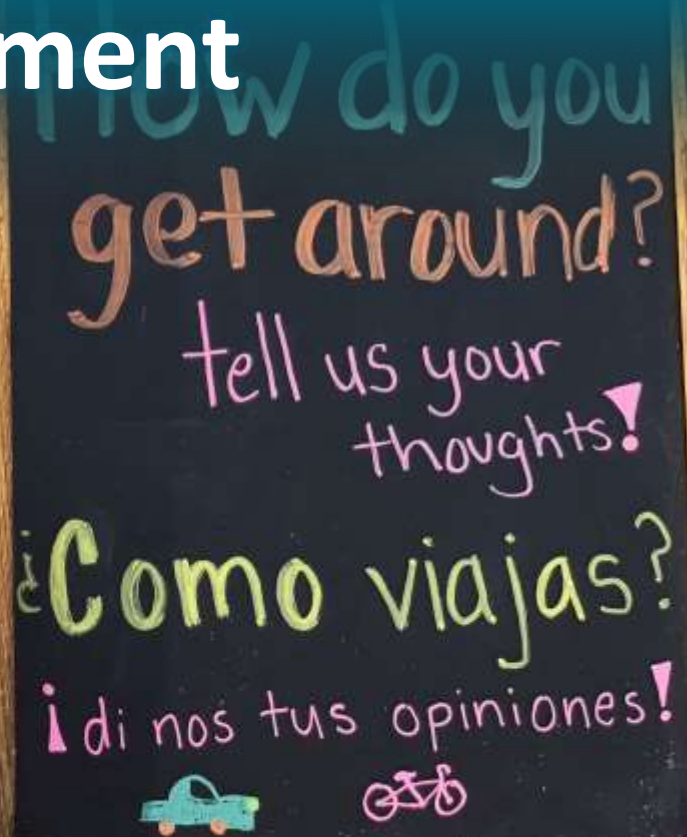 ment
How do you
get around?
tell us your
thoughts!
¿Como viajas?
¡di nos tus opiniones!